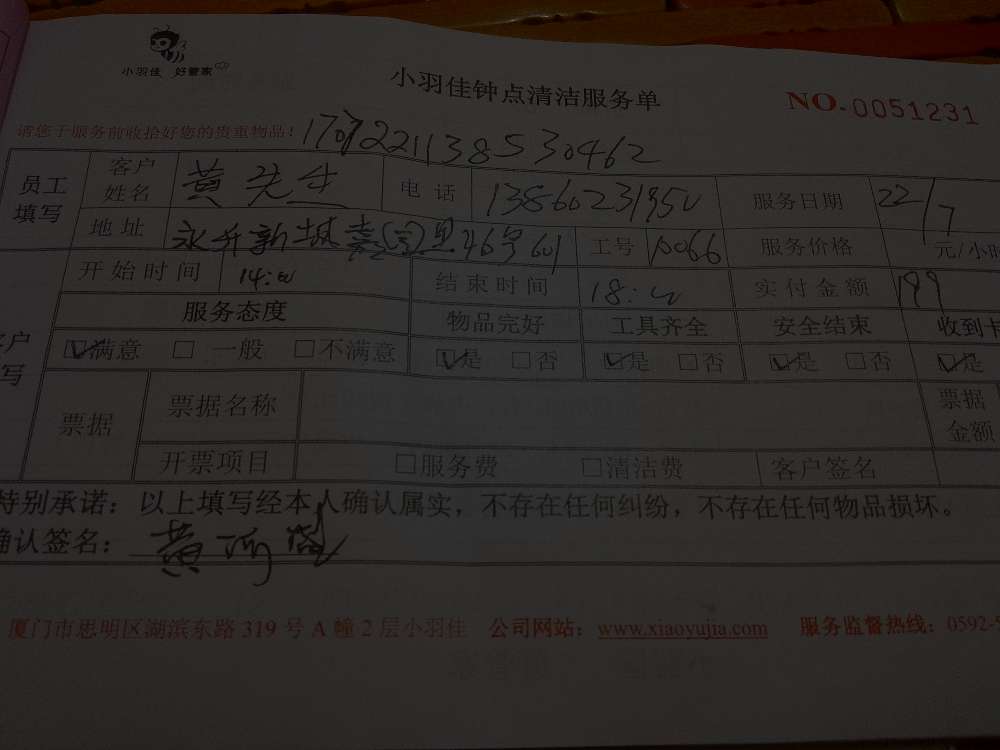 小羽佳 好管家
小羽佳钟点清洁服务单 NO. 0051231
请您于服务前收拾好您的贵重物品!
员工填写 客户姓名 黄先生 电话 服务日期 22/7
地址 永升新城 46号601 工号 服务价格 元/小时
开始时间 14:00 结束时间 18:00 实付金额 199
服务态度 物品完好 工具齐全 安全结束 收到卡
满意 一般 不满意 是 否 是 否 是 否 是
票据 票据名称 票据金额
开票项目 服务费 清洁费 客户签名
特别承诺:以上填写经本人确认属实,不存在任何纠纷,不存在任何物品损坏。
确认签名: 黄
厦门市思明区湖滨东路 319 号 A 幢 2 层小羽佳 公司网站:www.xiaoyujia.com 服务监督热线:0592-